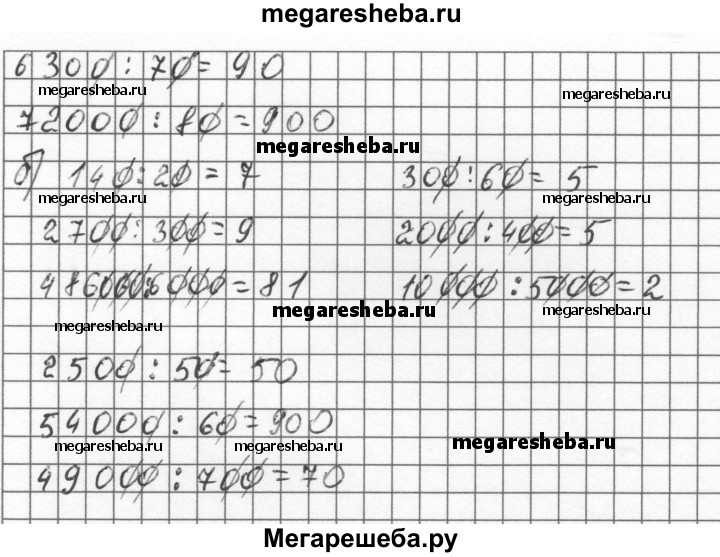 megaresheba.ru
6300 : 70 = 90
megaresheba.ru megaresheba.ru
72000 : 80 = 900
megaresheba.ru
б) 140 : 20 = 7 300 : 60 = 5
megaresheba.ru megaresheba.ru
2700 : 300 = 9 2000 : 400 = 5
486000 : 6000 = 81 10000 : 5000 = 2
megaresheba.ru megaresheba.ru
megaresheba.ru
2500 : 50 = 50
54000 : 60 = 900
megaresheba.ru megaresheba.ru megaresheba.ru
49000 : 700 = 70
Мегарешеба.ру